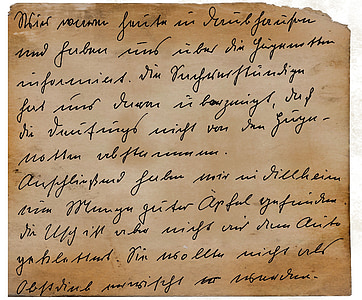 Wir waren heute in Daubhausen
und haben uns über die Hugenotten
informiert. Die Sachverständige
hat uns davon überzeugt, daß
die Deutungs nicht von den Huge-
notten abstammen.
Anschließend haben wir in Dillheim
eine Menge guter Äpfel gefunden
die Usch ist aber nicht auf dem Auto
geklettert. Sie wollte nicht als
Obstdieb erwischt werden.